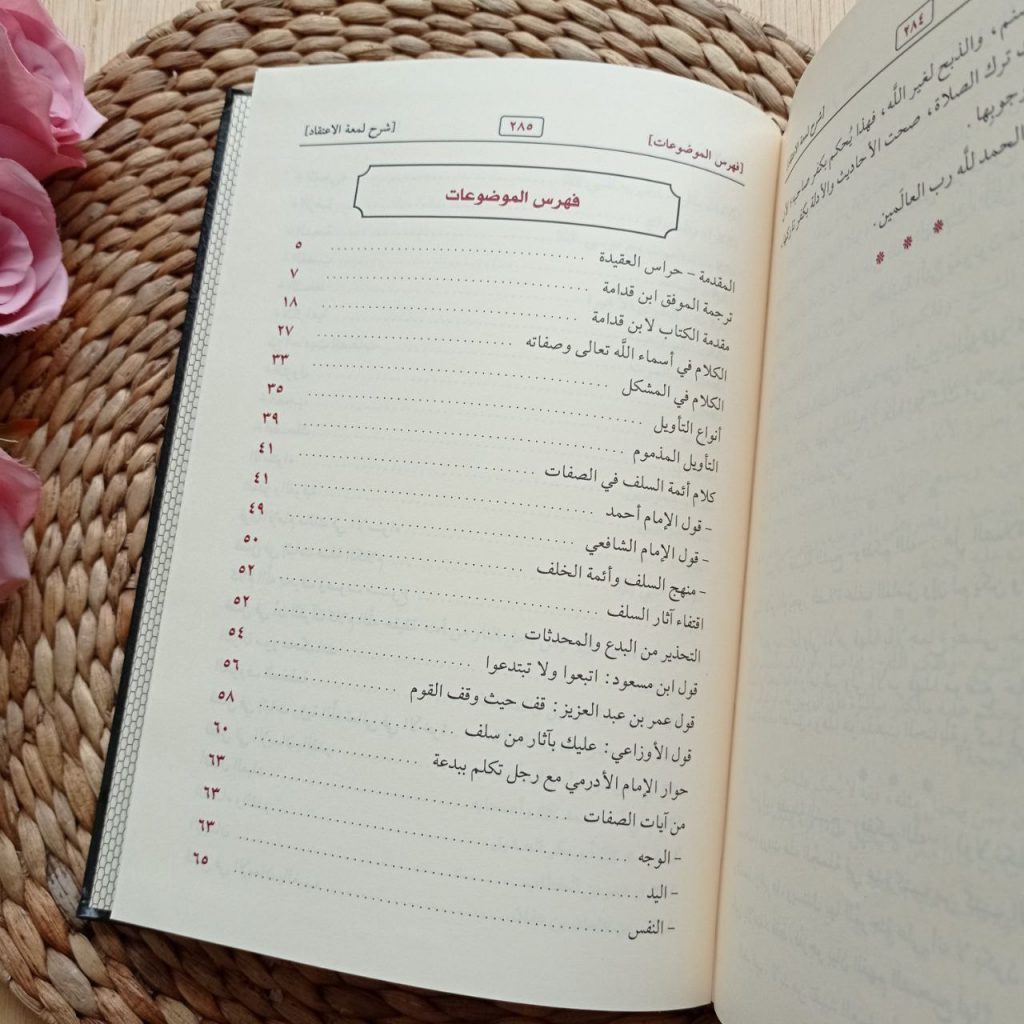 ٢٨٤
[شرح لمعة الاعتقاد]
والذبح لغير اللَّه، فهذا يُحكم بكفر
ترك الصلاة، صحت الأحاديث والأدلة بكفر تاركها
الحمد للَّه رب العالَمين.
* * *
[فهرس الموضوعات] ٢٨٥ [شرح لمعة الاعتقاد]
فهرس الموضوعات
المقدمة – حراس العقيدة ٥
ترجمة الموفق ابن قدامة ٧
مقدمة الكتاب لابن قدامة ١٨
الكلام في أسماء اللَّه تعالى وصفاته ٢٧
الكلام في المشكل ٣٣
أنواع التأويل ٣٥
التأويل المذموم ٣٩
كلام أئمة السلف في الصفات ٤١
- قول الإمام أحمد ٤١
- قول الإمام الشافعي ٤٩
- منهج السلف وأئمة الخلف ٥٠
اقتفاء آثار السلف ٥٢
التحذير من البدع والمحدثات ٥٢
قول ابن مسعود: اتبعوا ولا تبتدعوا ٥٤
قول عمر بن عبد العزيز: قف حيث وقف القوم ٥٦
قول الأوزاعي: عليك بآثار من سلف ٥٨
حوار الإمام الأدرمي مع رجل تكلم ببدعة ٦٠
من آيات الصفات ٦٣
- الوجه ٦٣
- اليد ٦٣
- النفس ٦٥